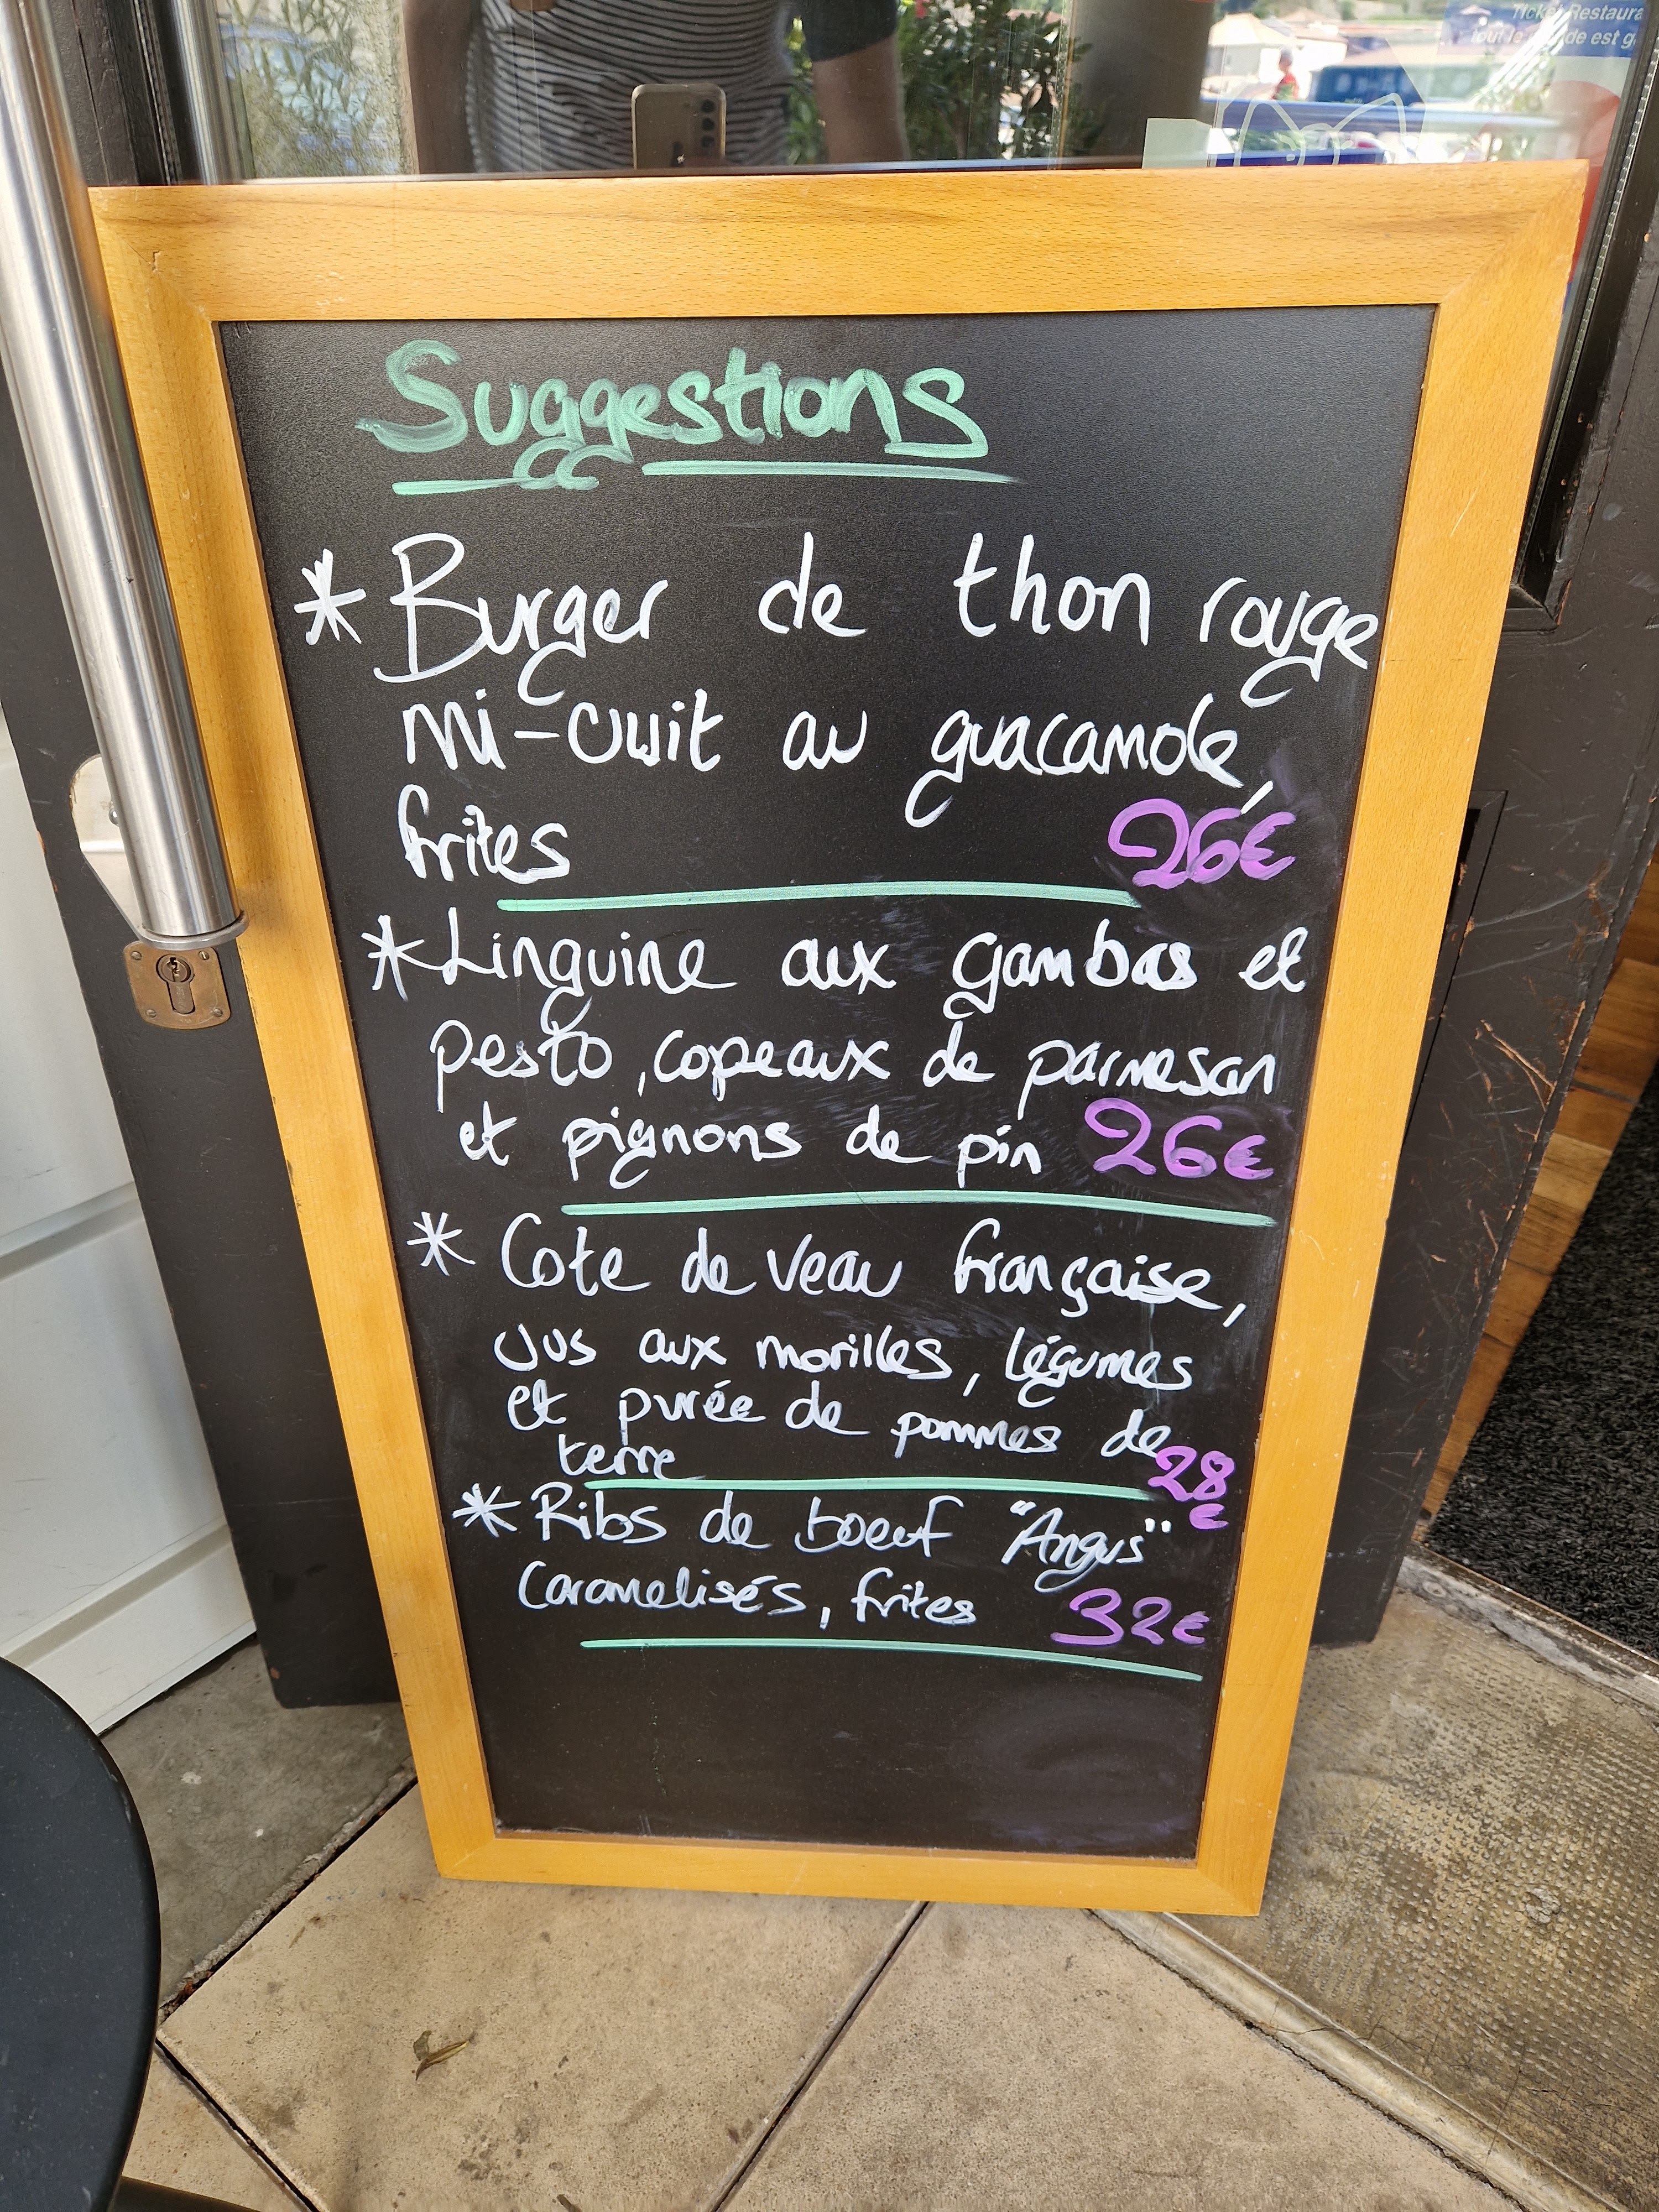 Ticket Restaura
Suggestions
* Burger de thon rouge
mi-cuit au guacamole,
frites 26€
* Linguine aux gambas et
pesto, copeaux de parmesan
et pignons de pin 26€
* Cote de veau française,
Jus aux morilles, légumes
et purée de pommes de
terre 28
€
* Ribs de boeuf "Angus"
Caramelisés, frites 32€